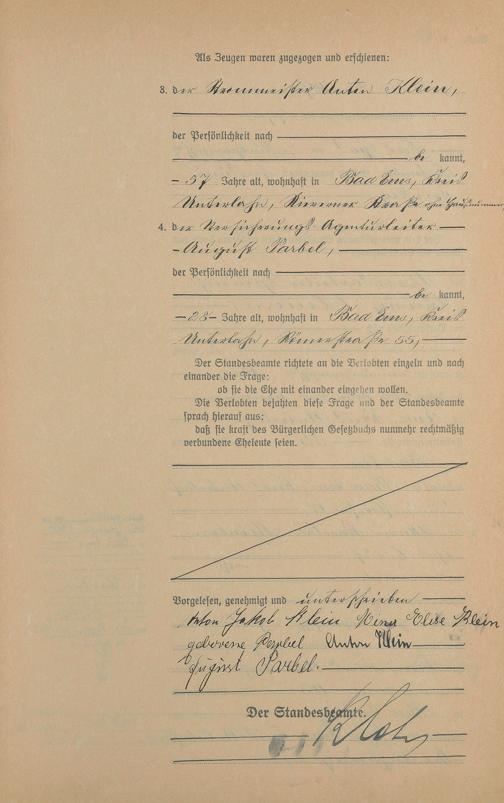 Als Zeugen waren zugezogen und erschienen:
3. der Brommeister Anton Klein,
der Persönlichkeit nach
be kannt,
57 Jahre alt, wohnhaft in Bad Ems, Kreis
Unterlahn, Nieverner Straße ohne Hausnummer
4. der Versicherungs Agenturleiter
August Parbel,
der Persönlichkeit nach
be kannt,
28 Jahre alt, wohnhaft in Bad Ems, Kreis
Unterlahn, Römerstraße 55,
Der Standesbeamte richtete an die Verlobten einzeln und nach
einander die Frage:
ob sie die Ehe mit einander eingehen wollen.
Die Verlobten bejahten diese Frage und der Standesbeamte
sprach hierauf aus:
daß sie kraft des Bürgerlichen Gesetzbuchs nunmehr rechtmäßig
verbundene Eheleute seien.
Vorgelesen, genehmigt und unterschrieben
Anton Jakob Klein Elise Klein
geborene Parbel Anton Klein
August Parbel.
Der Standesbeamte.